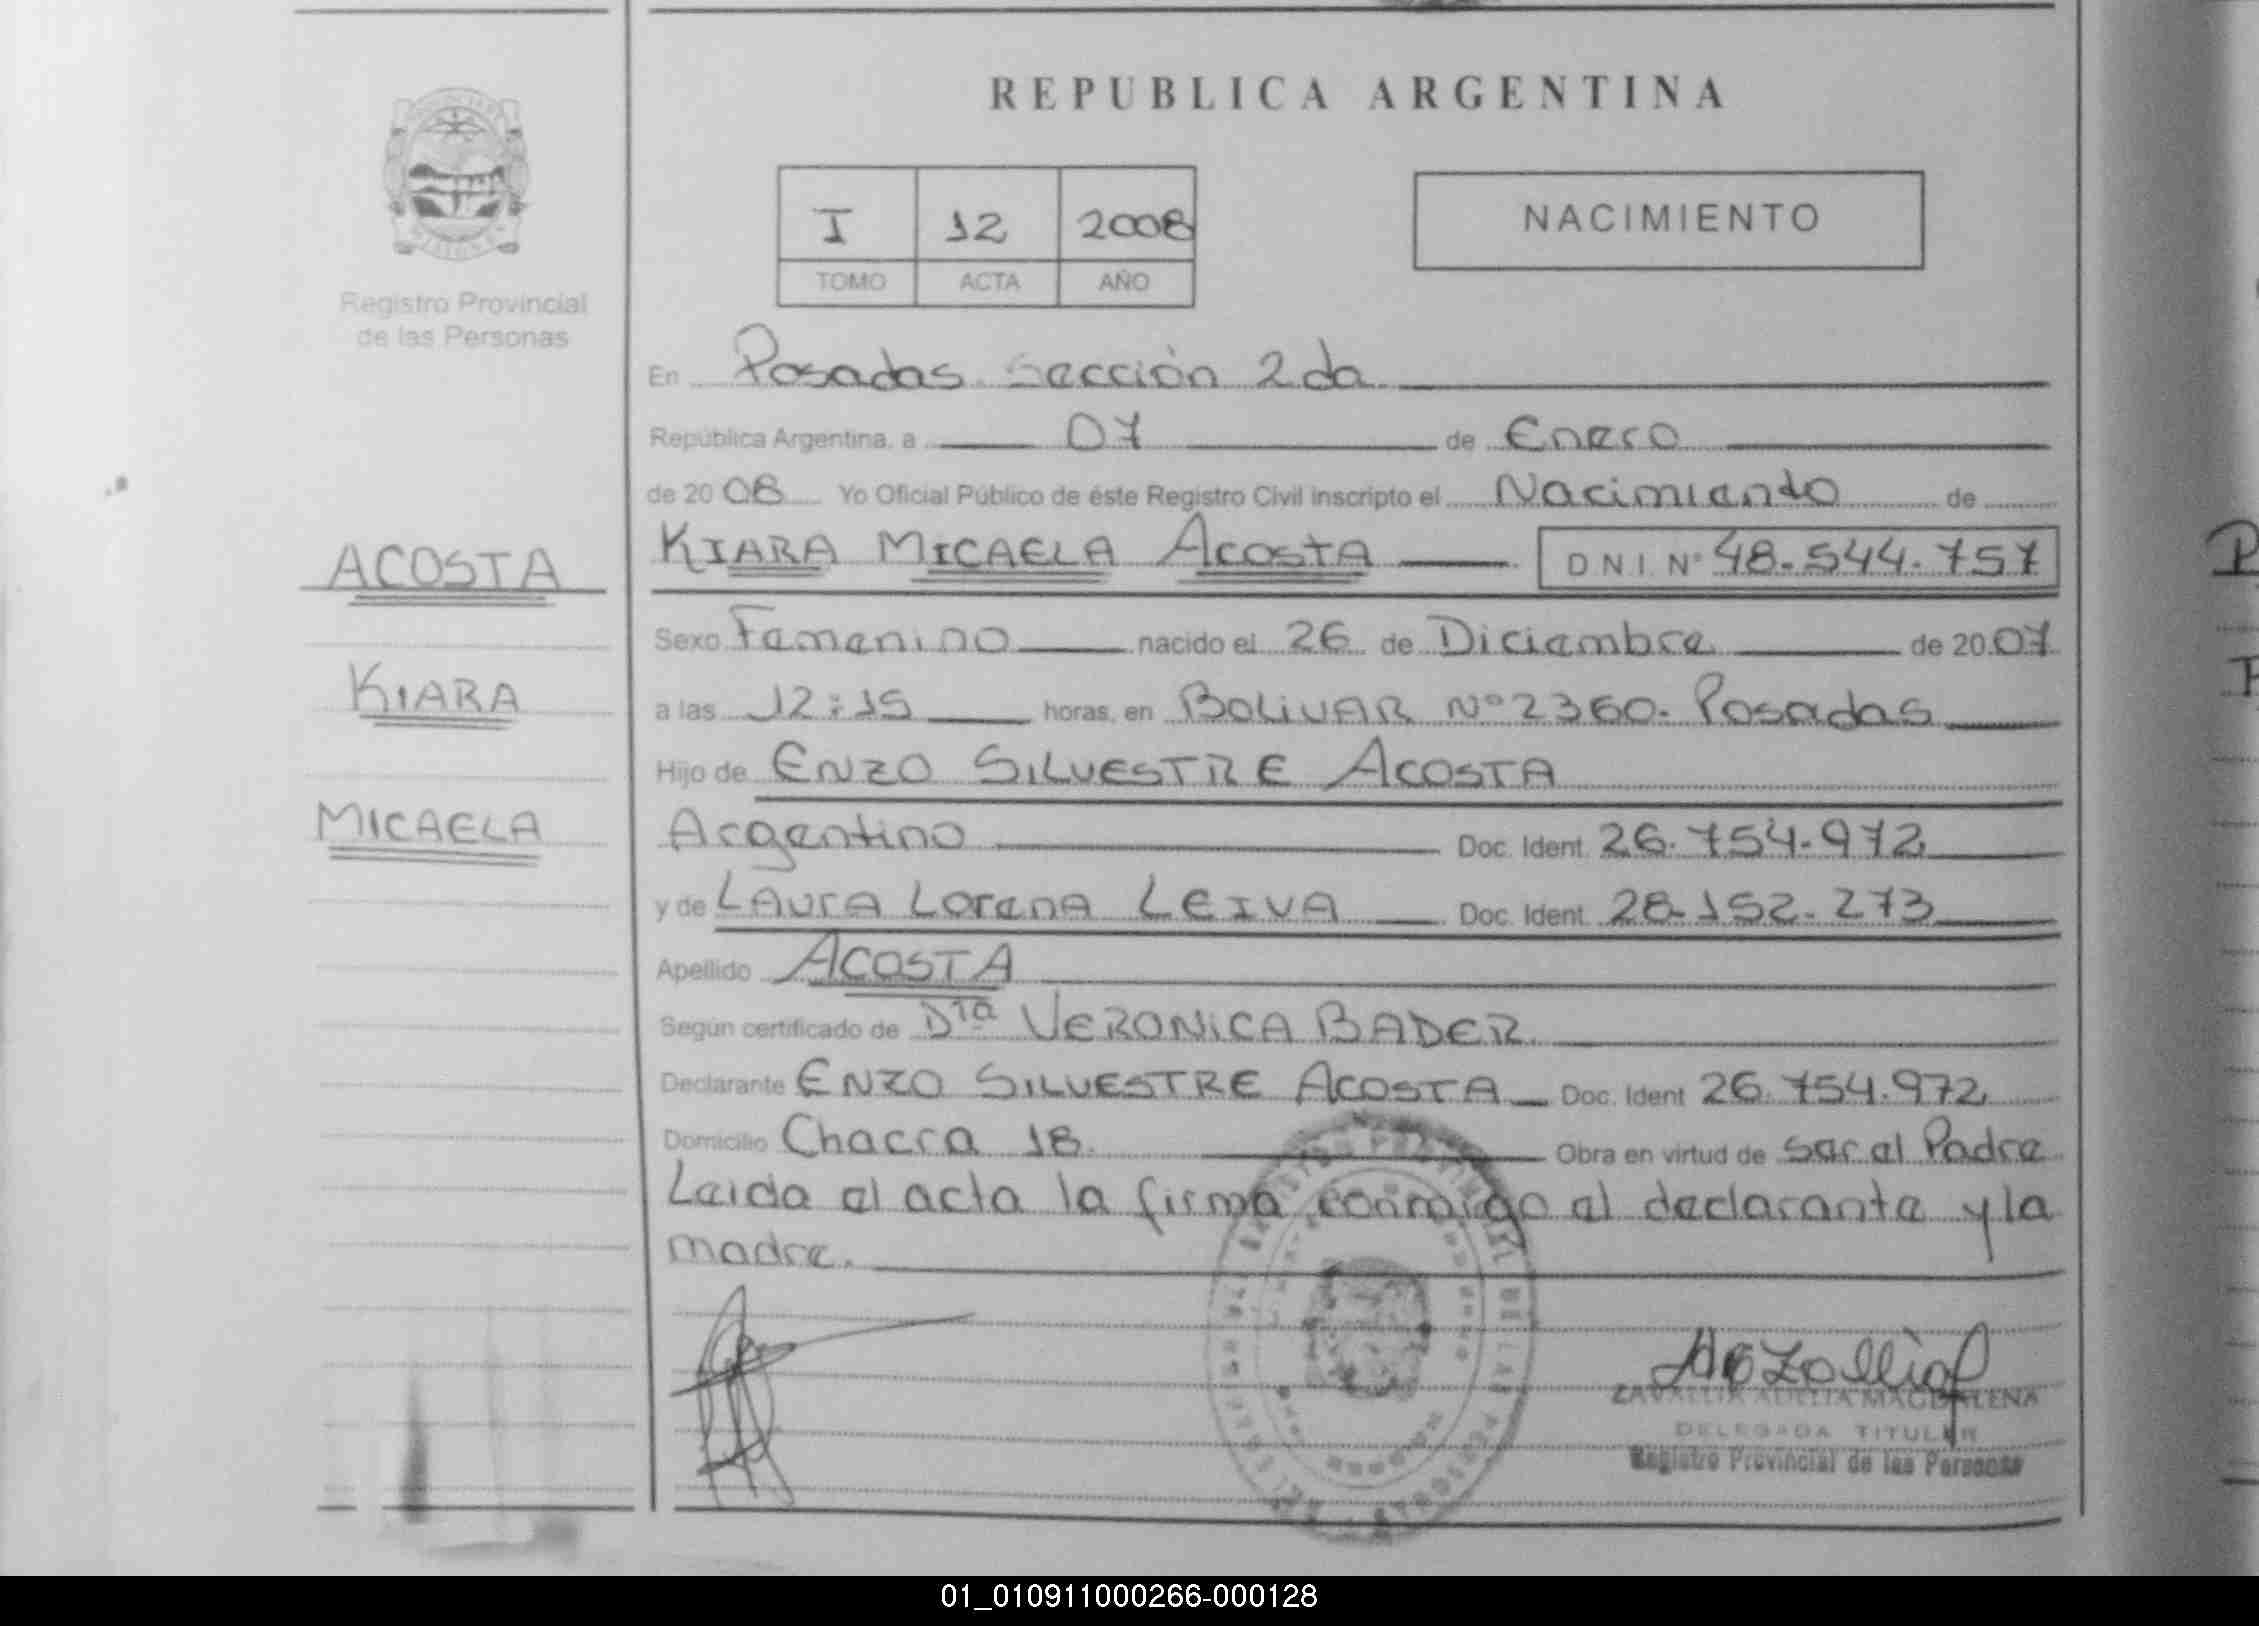 REPUBLICA ARGENTINA
I 12 2008
TOMO ACTA AÑO
NACIMIENTO
Registro Provincial
de las Personas
En Posadas Sección 2da
República Argentina, a 07 de Enero
de 2008 Yo Oficial Público de éste Registro Civil inscripto el Nacimiento de
KIARA MICAELA ACOSTA D N I Nº 48.544.757
ACOSTA
KIARA
MICAELA
Sexo Femenino nacido el 26 de Diciembre de 2007
a las 12:15 horas, en BOLIVAR Nº 2360. Posadas
Hijo de ENZO SILVESTRE ACOSTA
Argentino Doc. Ident. 26.754.972
y de LAURA LORENA LEIVA Doc. Ident. 28.152.273
Apellido ACOSTA
Según certificado de Dra VERONICA BADER.
Declarante ENZO SILVESTRE ACOSTA Doc. Ident 26.754.972
Domicilio Chacra 18. Obra en virtud de ser el Padre
Leida el acta la firma conmigo el declarante y la
madre.
ZAVALLIA MAGDALENA
DELEGADA TITULAR
Registro Provincial de las Personas
01_010911000266-000128